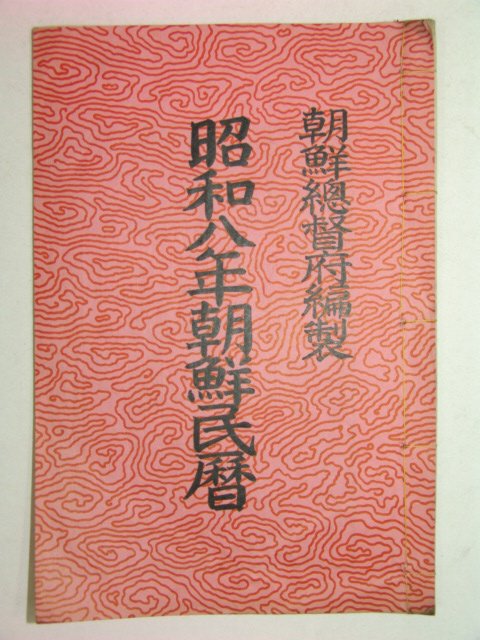 朝鮮總督府編製
昭和八年朝鮮民曆